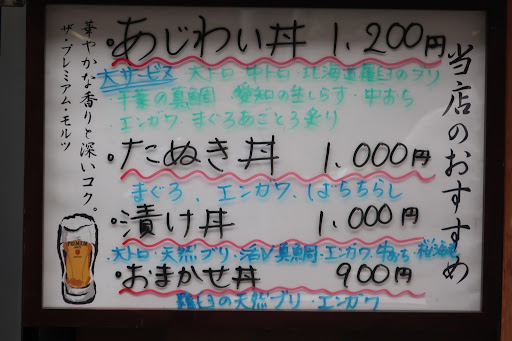 当店のおすすめ
・あじわい丼 1,200円
大サービス 大トロ・中トロ・北海道羅臼のブリ
・千葉の真鯛・愛知の生しらす・中おち
・エンガワ・まぐろあごとろ炙り
・たぬき丼 1,000円
まぐろ、エンガワ、ばちちらし
・漬け丼 1,000円
・大トロ・天然ブリ・活〆真鯛・エンガワ・中おち・桜海老
・おまかせ丼 900円
羅臼の天然ブリ・エンガワ
華やかな香りと深いコク。
ザ・プレミアム・モルツ